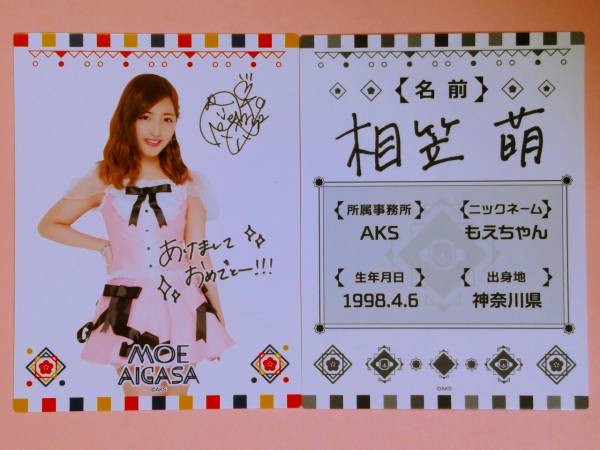 あけまして
おめでとー!!!
MOE
AIGASA
©AKS
【名前】
相笠 萌
【所属事務所】
AKS
【ニックネーム】
もえちゃん
【生年月日】
1998.4.6
【出身地】
神奈川県
©AKS